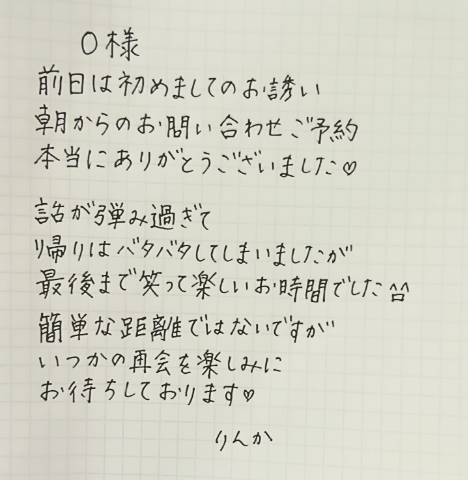 O様
前日は初めましてのお誘い
朝からのお問い合わせご予約
本当にありがとうございました♡
話が弾み過ぎて
帰りはバタバタしてしまいましたが
最後まで笑って楽しいお時間でした^^
簡単な距離ではないですが
いつかの再会を楽しみに
お待ちしております♡
りんか